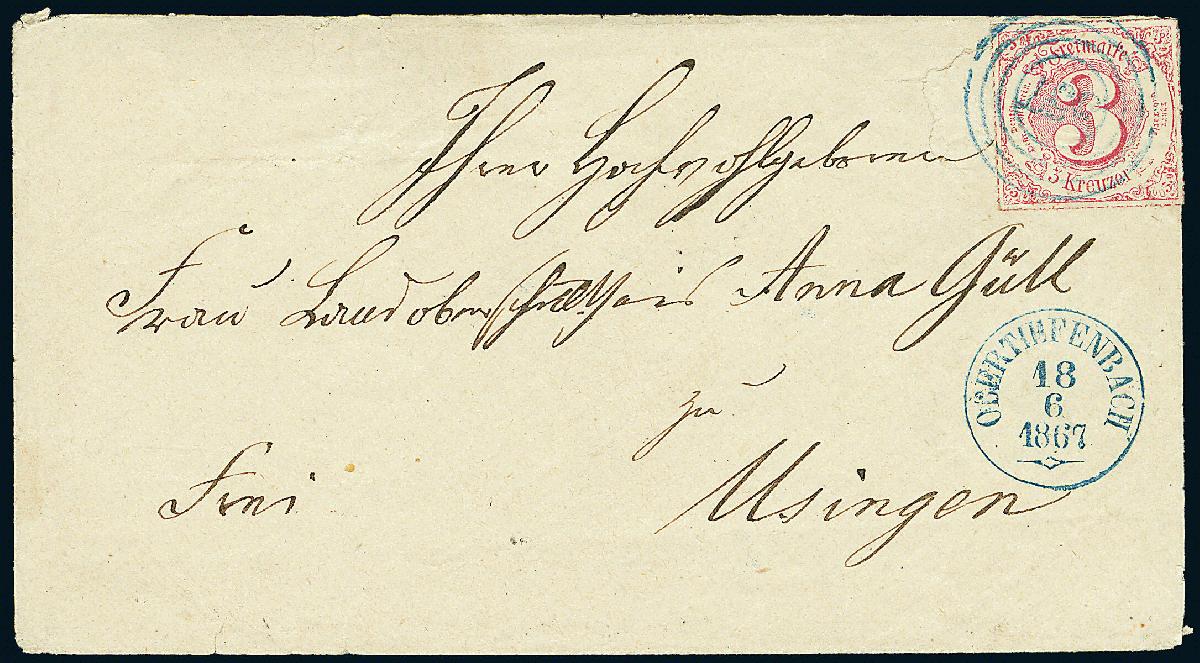 Freimarke
3
3 Kreuzer
Ihrer Hochwohlgeboren
Frau Landoberschultheis Anna Güll
OBERTIEFENBACH
18
6
1867
zu
Frei
Usingen